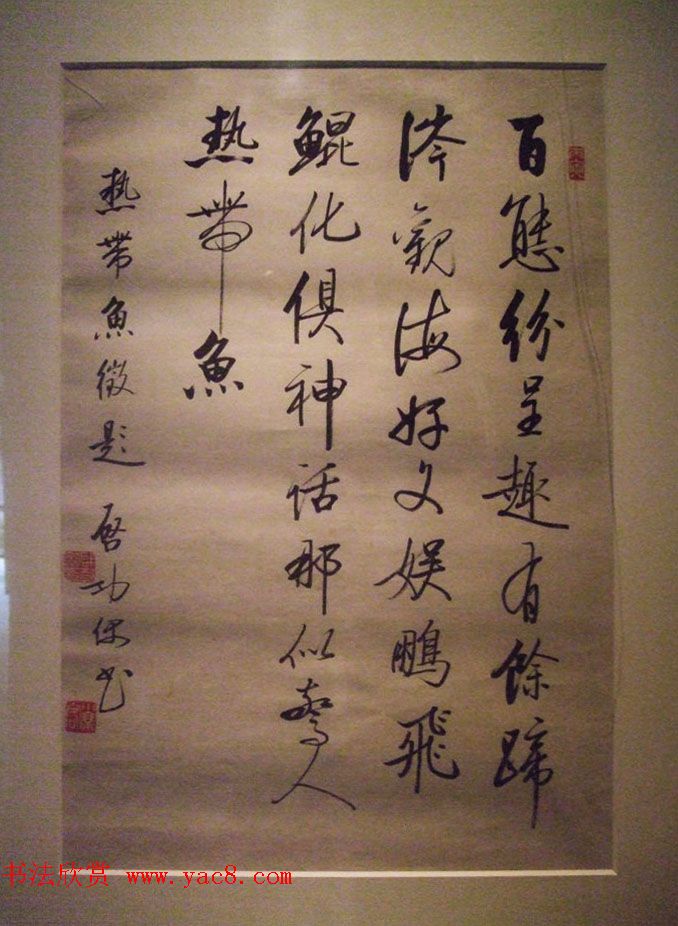 百態紛呈趣有餘蹄
涔觀海好文娱鵬飛
鯤化俱神話那似驚人
熱帶魚
熱帶魚徵題 啓功书
书法欣赏 www.yac8.com